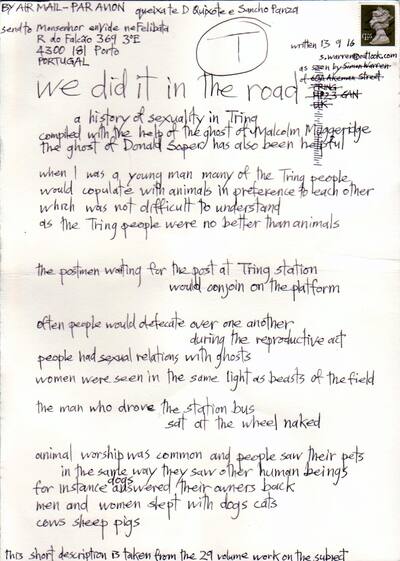 BY AIR MAIL - PAR AVION
queixate D Quixote e Sancho Panza
send to Monsenhor enVide neFelibata
R do Falcão 369 3ºE
4300 181 Porto
PORTUGAL
T
written 13 9 16
s.warren@outlook.com
as seen by Simon Warren
of 60A Akeman Street
TRING
HP23 6AN
UK
we did it in the road
a history of sexuality in Tring
compiled with the help of the ghost of Malcolm Muggeridge
the ghost of Donald Soper has also been helpful
when I was a young man many of the Tring people
would copulate with animals in preference to each other
which was not difficult to understand
as the Tring people were no better than animals
the postmen waiting for the post at Tring station
would conjoin on the platform
often people would defecate over one another
during the reproductive act
people had sexual relations with ghosts
women were seen in the same light as beasts of the field
the man who drove the station bus
sat at the wheel naked
animal worship was common and people saw their pets
in the same way they saw other human beings
for instance dogs answered their owners back
men and women slept with dogs cats
cows sheep pigs
this short description is taken from the 29 volume work on the subject